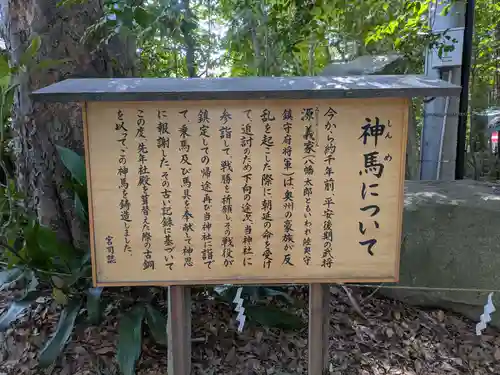 神馬について
しんめ
今から約千年前、平安後期の武将
源義家(八幡太郎ともいわれ陸奥
鎮守府将軍)は、奥州の豪族が反
乱を起した際に朝廷の命を受け
て、追討のため下向、途次、当神社に
参詣して、戦勝を祈願しその戦役が
鎮定しての帰途再び当神社に詣で
て、乗馬及び馬具を奉献して神恩
に報謝した。その古い記録に基づいて
この度、先年社殿を葺替えた際の古銅
を以って、この神馬を鋳造しました。
宮司誌